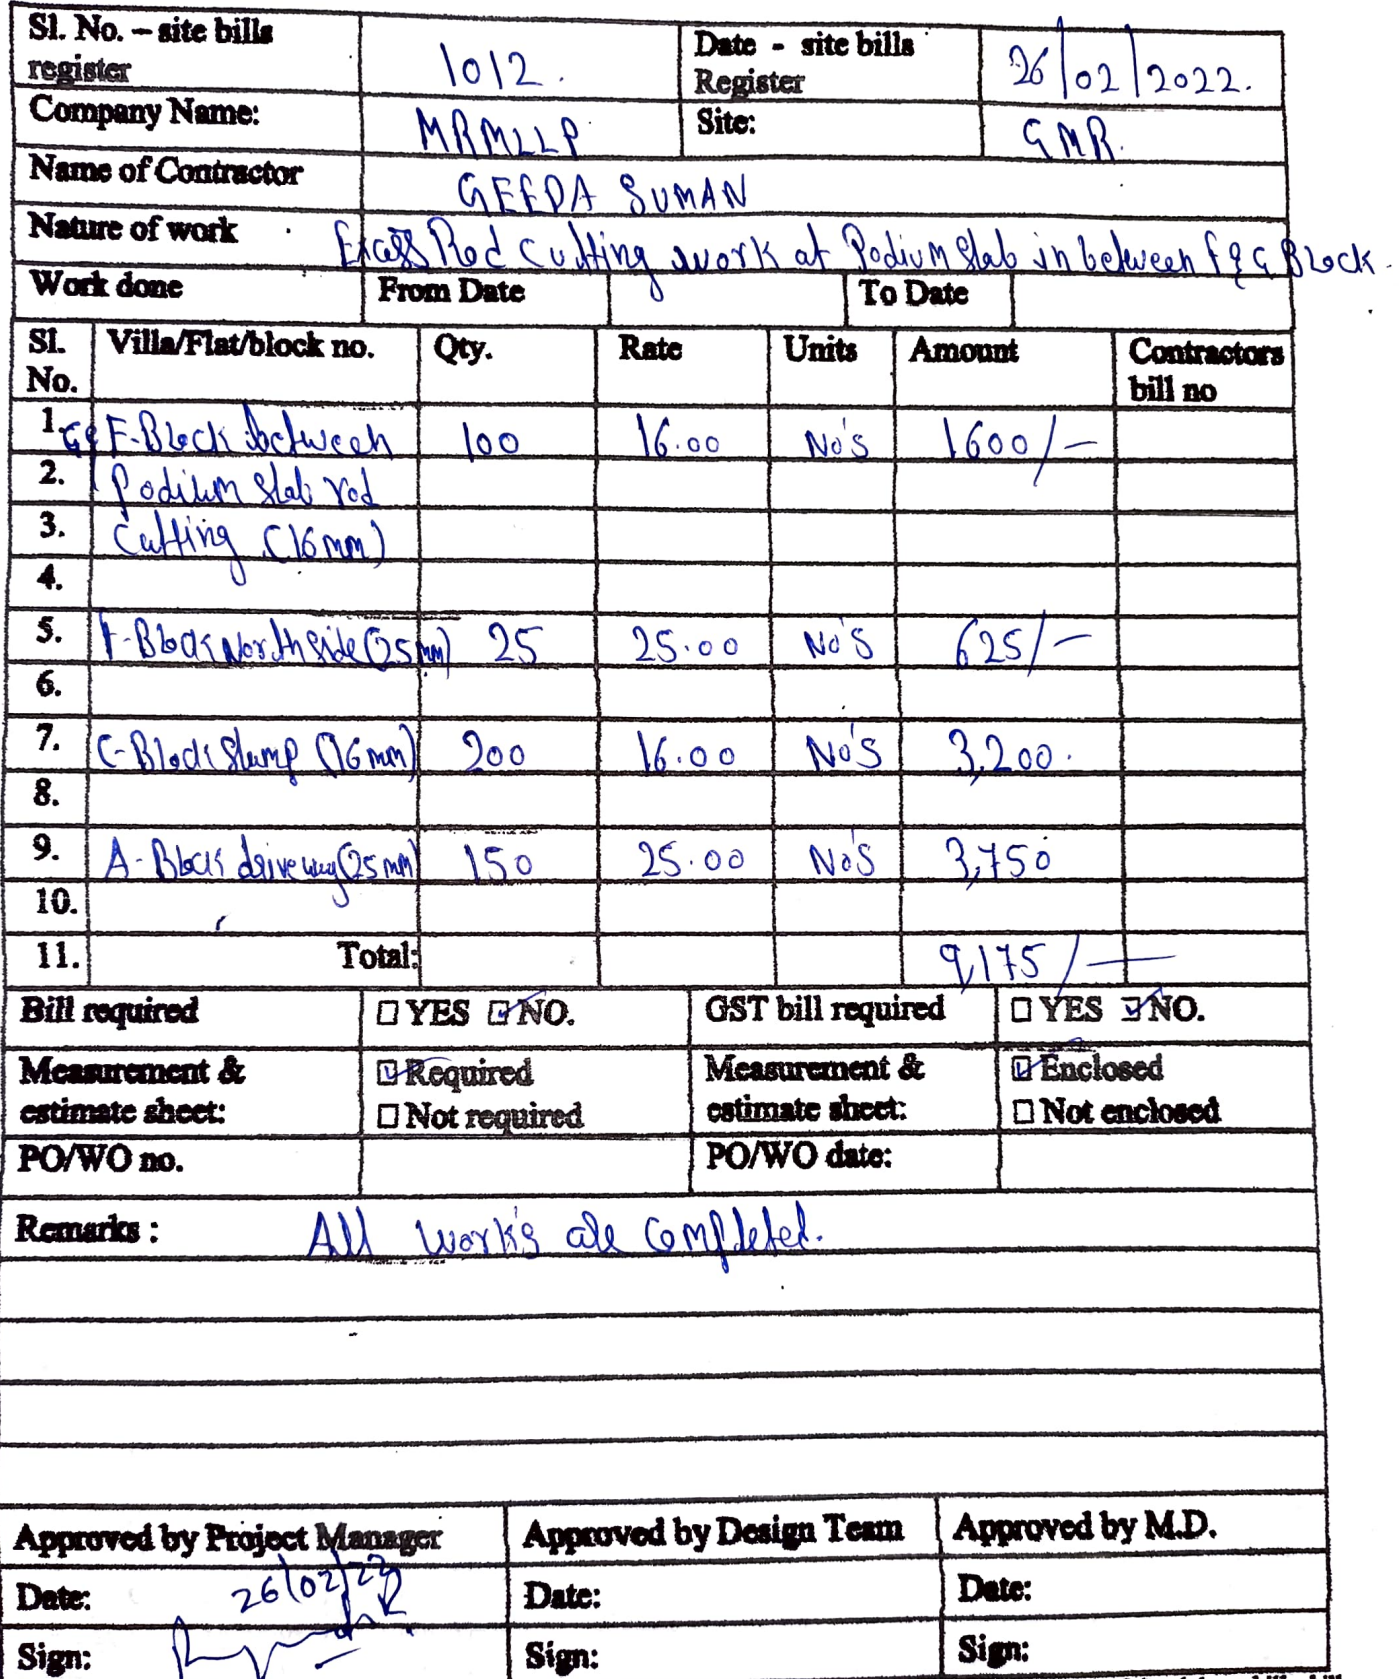 Sl. No. – site bills register 1012. Date - site bills Register 26/02/2022.
Company Name: MRMLLP Site: GMR.
Name of Contractor GEEDA SUMAN
Nature of work Excess Rod cutting work at Podium Slab in between F & G Block.
Work done From Date To Date
Sl. No. Villa/Flat/block no. Qty. Rate Units Amount Contractors bill no
1. G& F-Block between 100 16.00 No's 1600/-
2. Podium Slab rod
3. Cutting (16mm)
4.
5. F-Block North side (25mm) 25 25.00 No's 625/-
6.
7. C-Block Slump (16mm) 200 16.00 No's 3,200.
8.
9. A-Block driveway (25mm) 150 25.00 No's 3,750
10.
11. Total: 9,175/-
Bill required YES NO. GST bill required YES NO.
Measurement & estimate sheet: Required Measurement & estimate sheet: Enclosed
Not required Not enclosed
PO/WO no. PO/WO date:
Remarks : All work's are completed.
Approved by Project Manager Approved by Design Team Approved by M.D.
Date: 26/02/22 Date: Date:
Sign: Sign: Sign: